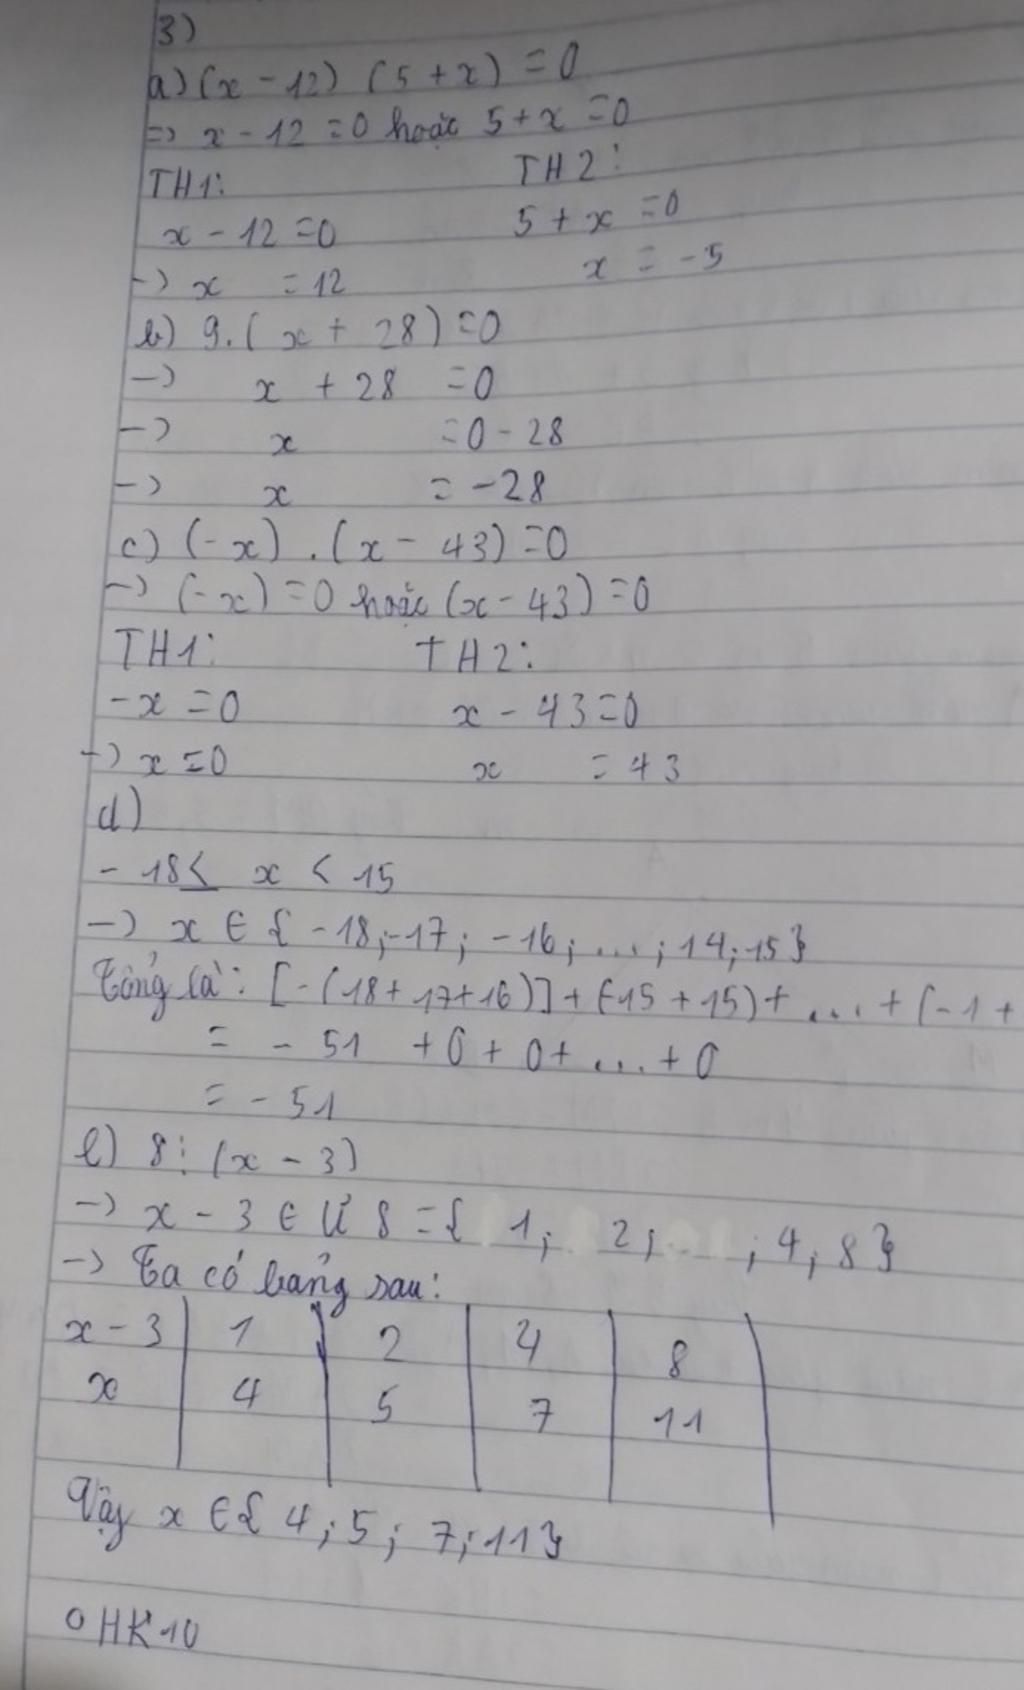 3)
a) (x - 12) (5 + x) = 0
=> x - 12 = 0 hoặc 5 + x = 0
TH1: TH2:
x - 12 = 0 5 + x = 0
-> x = 12 x = -5
b) 9. ( x + 28 ) = 0
-> x + 28 = 0
-> x = 0 - 28
-> x = -28
c) (-x) . (x - 43) = 0
-> (-x) = 0 hoặc (x - 43) = 0
TH1: TH2:
-x = 0 x - 43 = 0
-> x = 0 x = 43
d)
- 18 ≤ x < 15
-> x ∈ { -18; -17; -16; ...; 14; 15}
Tổng là: [-(18+17+16)] + (-15 + 15) + ... + (-1 +
= - 51 + 0 + 0 + ... + 0
= - 51
e) 8 ⋮ (x - 3)
-> x - 3 ∈ Ư 8 = { 1; 2; ; 4; 8}
-> Ta có bảng sau:
x - 3 1 2 4 8
x 4 5 7 11
Vậy x ∈ { 4; 5; 7; 11}
OHK10